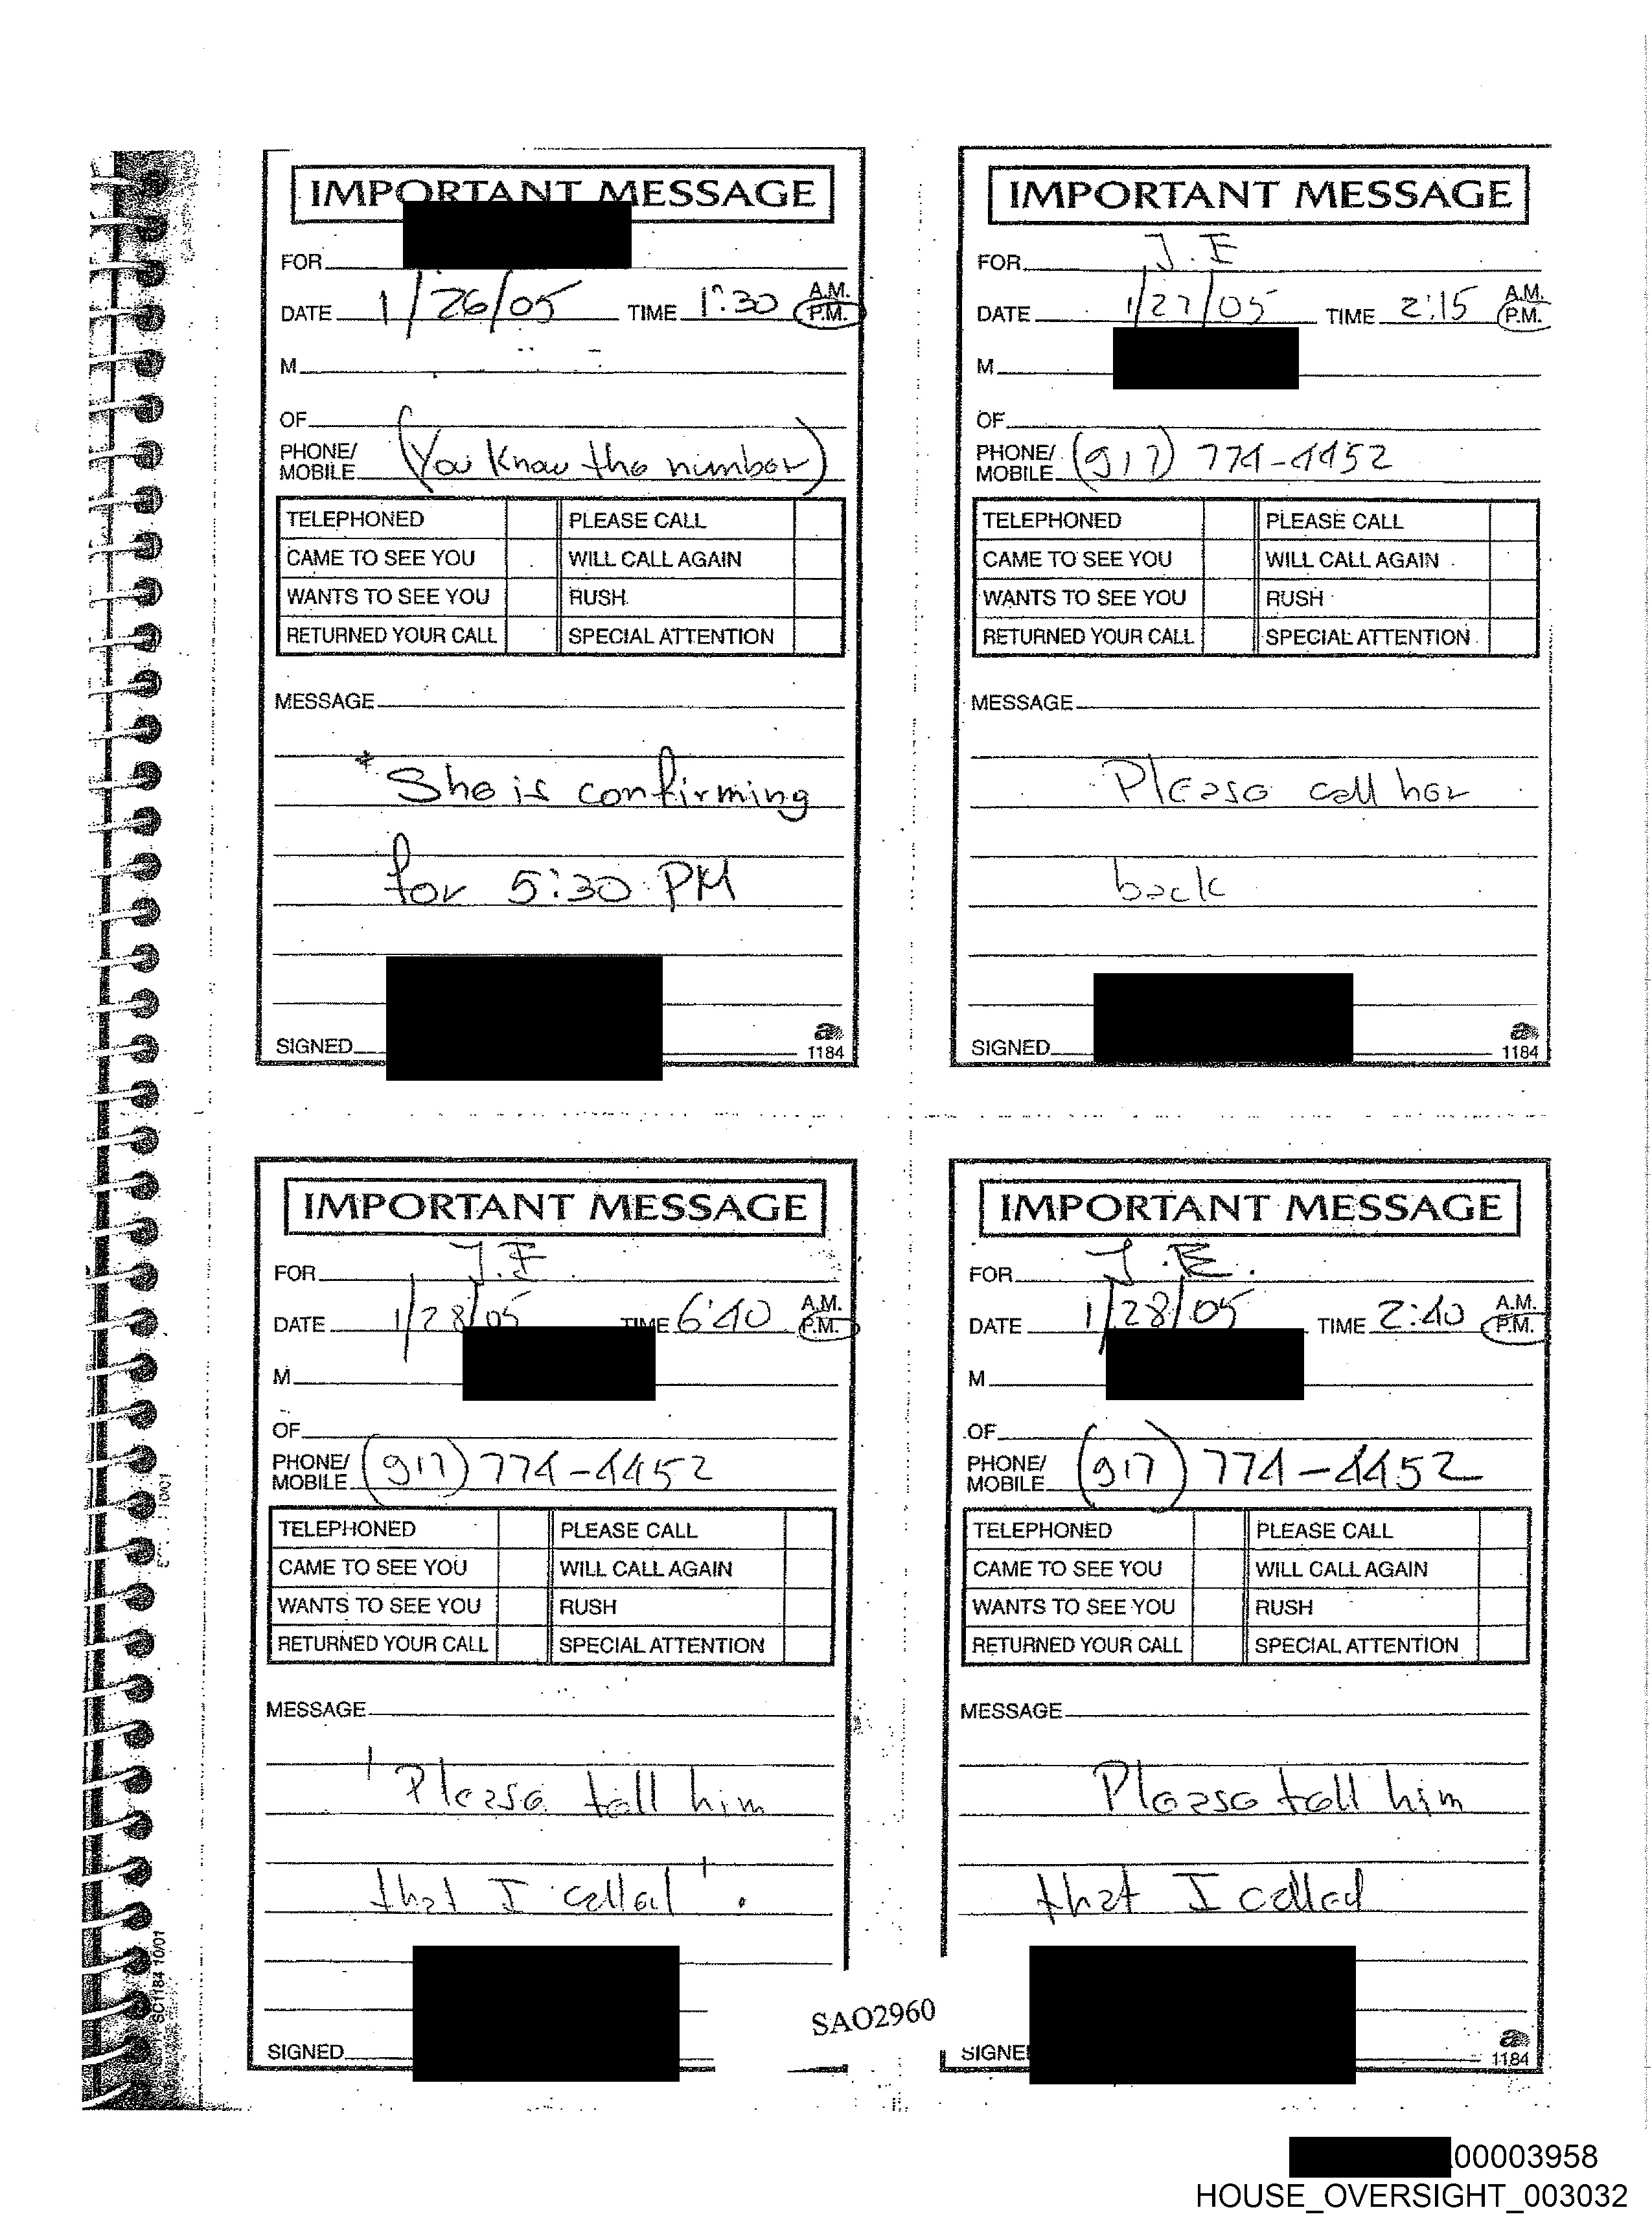 IMPORTANT MESSAGE
FOR
DATE 1/26/05 TIME 1:30 A.M.
P.M.
M
OF
PHONE/
MOBILE (You know the number)
TELEPHONED PLEASE CALL
CAME TO SEE YOU WILL CALL AGAIN
WANTS TO SEE YOU RUSH
RETURNED YOUR CALL SPECIAL ATTENTION
MESSAGE
* She is confirming
for 5:30 PM
SIGNED
1184
IMPORTANT MESSAGE
FOR J.E
DATE 1/27/05 TIME 2:15 A.M.
P.M.
M
OF
PHONE/
MOBILE (917) 774-4452
TELEPHONED PLEASE CALL
CAME TO SEE YOU WILL CALL AGAIN
WANTS TO SEE YOU RUSH
RETURNED YOUR CALL SPECIAL ATTENTION
MESSAGE
Please call her
back
SIGNED
1184
IMPORTANT MESSAGE
FOR J.E
DATE 1/28/05 TIME 6:40 A.M.
P.M.
M
OF
PHONE/
MOBILE (917) 774-4452
TELEPHONED PLEASE CALL
CAME TO SEE YOU WILL CALL AGAIN
WANTS TO SEE YOU RUSH
RETURNED YOUR CALL SPECIAL ATTENTION
MESSAGE
'Please tell him
that I called'.
SIGNED
IMPORTANT MESSAGE
FOR J.E.
DATE 1/28/05 TIME 2:40 A.M.
P.M.
M
OF
PHONE/
MOBILE (917) 774-4452
TELEPHONED PLEASE CALL
CAME TO SEE YOU WILL CALL AGAIN
WANTS TO SEE YOU RUSH
RETURNED YOUR CALL SPECIAL ATTENTION
MESSAGE
Please tell him
that I called
SIGNE
1184
SC1184 10/01
SAO2960
00003958
HOUSE_OVERSIGHT_003032